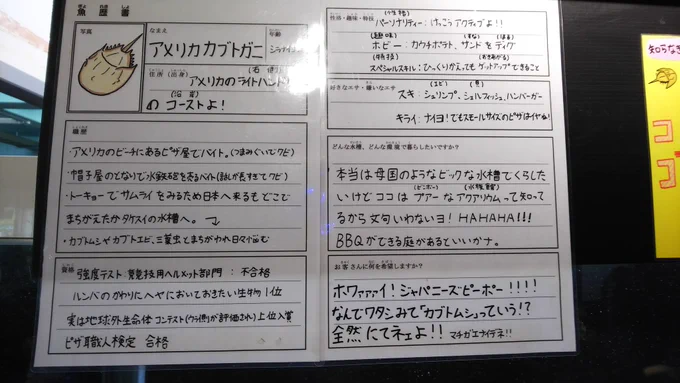 魚歴書
写真
なまえ
アメリカカブトガニ
年齢
シラナイヨ
住所 (出身) (右側)
アメリカのライトハンド
(沿岸)
の コーストよ!
職歴
・アメリカのビーチにあるピザ屋でバイト。(つまみぐいでクビ)
・帽子屋のとなりで水鉄砲を売るバイト(話しが長すぎてクビ)
・トーキョーでサムライをみるため日本へ来るもどこで
まちがえたかタケスイの水槽へ。
・カブトムシやカブトエビ、三葉虫とまちがわれ日々悩む
資格
強度テスト 競技用ヘルメット部門 : 不合格
ルンバのかわりにヘヤにおいておきたい生物 1位
実は地球外生命体コンテスト(ウラ側が評価され)上位入賞
ピザ職人検定 合格
性格・趣味・特技
(性格)
パーソナリティー : けっこうアクティブよ!!
(趣味) (すな) (ほる)
ホビー : カウチポテト、サンドをディグ
(特技) (おきあがる)
スペシャルスキル : ひっくりかえってもゲットアップできること
好きなエサ・嫌いなエサ
(エビ) (貝)
スキ : シュリンプ、シェルフィッシュ、ハンバーガー
キライ : ナイヨ! でもスモールサイズのピザはイヤね!
どんな水槽、どんな環境で暮らしたいですか?
本当は母国のようなビックな水槽でくらした
(ビンボー) (水族館)
いけどココはプアーなアクアリウムって知って
るから文句いわないヨ! HAHAHA!!!
BBQができる庭があるといいかナ。
お客さんに何を希望しますか?
ホワァァァイ! ジャパニーズピーポー!!!!
なんでワタシみて「カブトムシ」っていう!?
全然にてネェよ!! マチガエナイデネ!!
知らな
コ